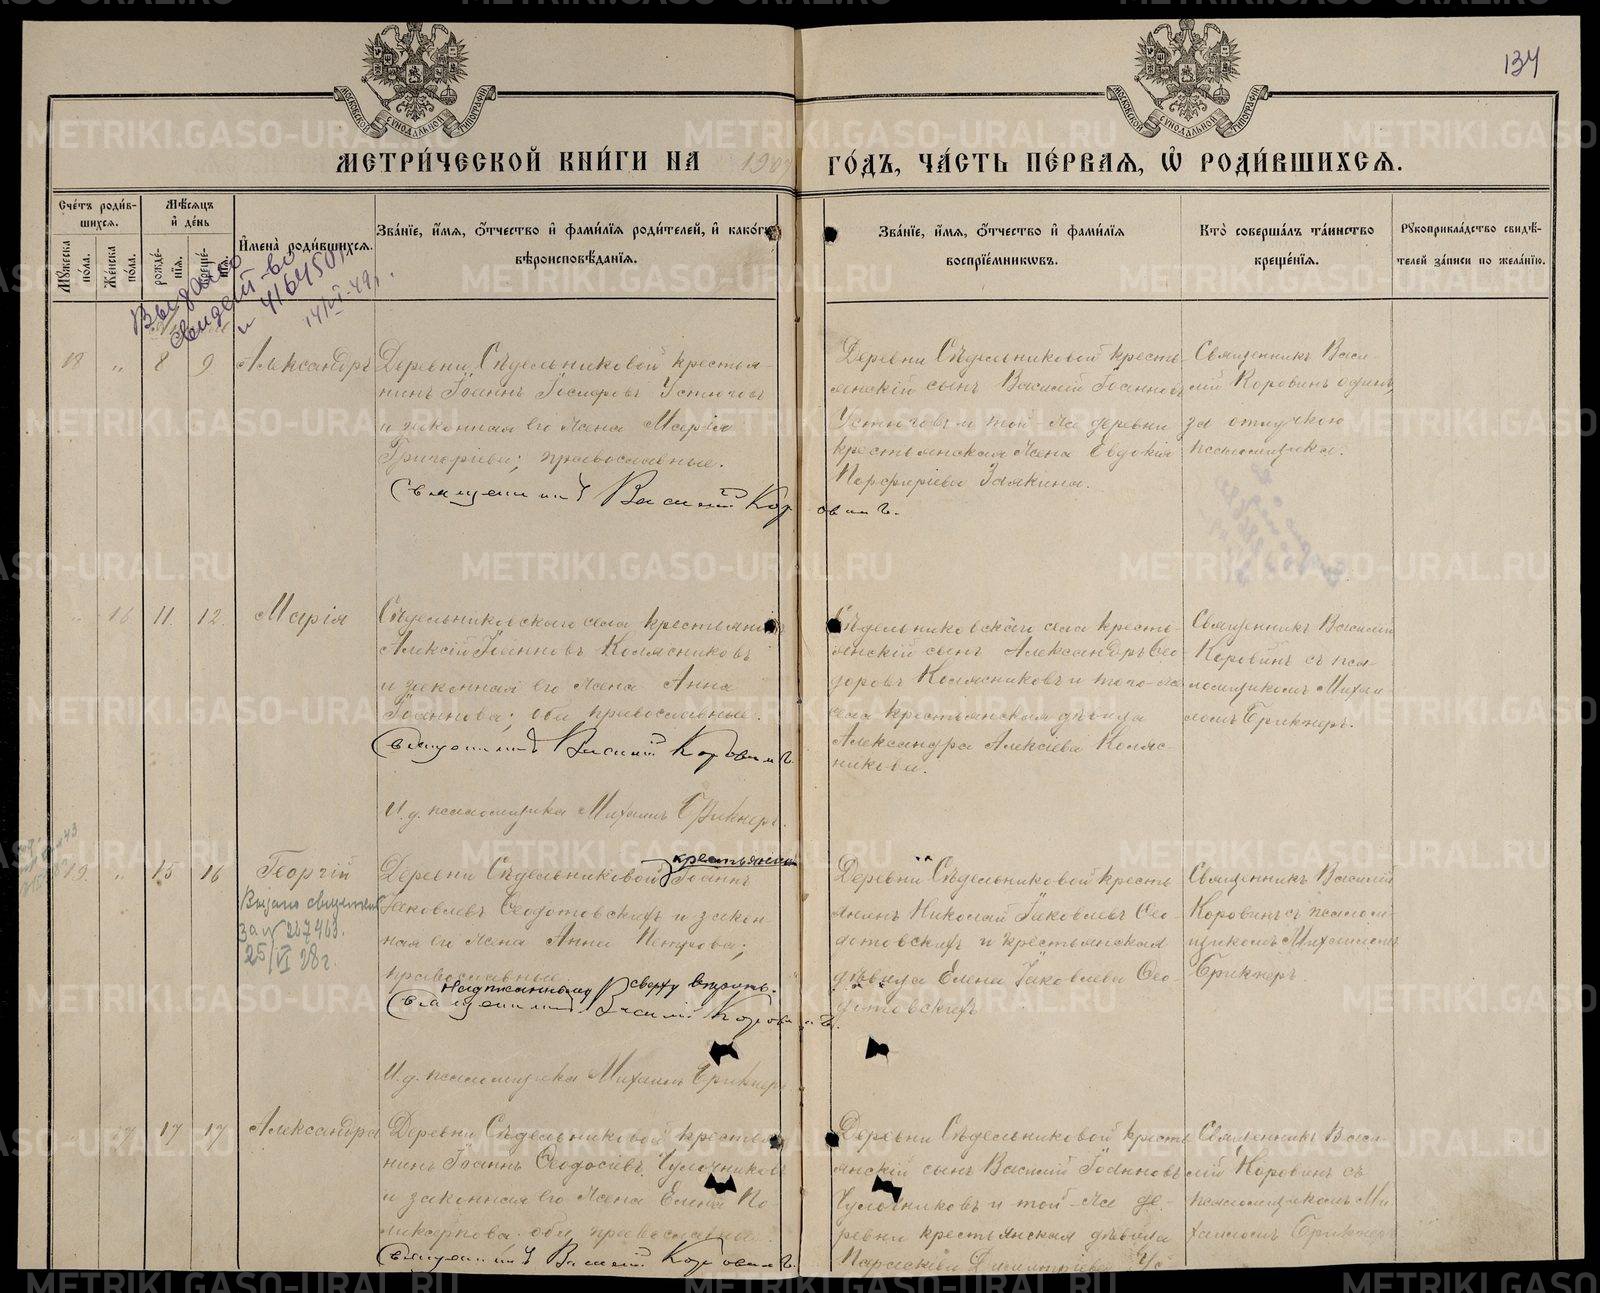 134
МОСКОВСКОЙ СѴНОДАЛЬНОЙ ТИПОГРАФІИ
МОСКОВСКОЙ СѴНОДАЛЬНОЙ ТИПОГРАФІИ
МЕТРИ́ЧЕСКОЙ КНИ́ГИ НА 190
ГО́ДЪ, ЧА́СТЬ ПЕ́РВАѦ, Ѡ҆ РОДИ́ВШИХСѦ.
Сче́тъ роди́в-
шихся.
Мꙋжеска по́ла.
Женска по́ла.
Мѣ́сяцъ
и҆ де́нь
рожде́-
нїя.
креще́-
нїя.
И҆мена̀ роди́вшихся.
Зва́нїе, и҆́мя, ѻ҆́тчество и҆ фами́лїя роди́телей, и҆ како́гѡ
вѣроисповѣ́данїя.
Зва́нїе, и҆́мя, ѻ҆́тчество и҆ фами́лїя
воспрїе́мниковъ.
Кто̀ соверша́лъ та́инство
креще́нїя.
Рꙋкоприкла́дство свидѣ́-
телей за́писи по жела́нїю.
Выдано
свидет-во
14/VI-49г.
18 " 8 9 Александръ
Деревни Сѣдельниковой крестья-
нинъ Іоаннъ Іосифовъ Устюговъ
и законная его жена Марія
Григоріева; православные.
Священникъ Василій Коровинъ.
Деревни Сѣдельниковой кресть-
янскій сынъ Василій Іоанновъ
Устюговъ и той-же деревни
крестьянская жена Евдокія
Порфиріева Заякина.
Священникъ Васи
лій Коровинъ одинъ,
за отлучкою
псаломщика.
" 16 11. 12. Марія
Сѣдельниковскаго села крестьянинъ
Алексій Іоанновъ Колясниковъ
и законная его жена Анна
Іоаннова; оба православные.
Священникъ Василій Коровинъ.
И.д. псаломщика Михаилъ Брикнеръ.
Сѣдельниковскаго села кресть-
янскій сынъ Александръ Ѳео-
доровъ Колясниковъ и того-же
села крестьянская дѣвица
Александра Алексіева Коляс-
никова.
Священникъ Василій
Коровинъ съ пса-
ломщикомъ Михаи-
ломъ Брикнеръ.
19. " 15 16 Георгій
Выдано свидетел
за № 267463.
25/VI 28г.
крестьянинъ
Деревни Сѣдельниковой Іоаннъ
Іаковлевъ Ѳеодотовскихъ и закон-
ная его жена Анна Петрова;
православные.
Надписанному сверху вѣрить.
Священникъ Василій Коровинъ.
И.д. псаломщика Михаилъ Брикнеръ
Деревни Сѣдельниковой кресть
янинъ Николай Іаковлевъ Ѳео-
дотовскихъ и крестьянская
дѣвица Елена Іаковлева Ѳео-
дотовскихъ
Священникъ Василій
Коровинъ съ псалом-
щикомъ Михаиломъ
Брикнеръ
17 17 17 Александра
Деревни Сѣдельниковой крестья
нинъ Іоаннъ Ѳеодосіевъ Чулочниковъ
и законная его жена Елена По-
ликарпова. оба православные.
Священникъ Василій Коровинъ.
Деревни Сѣдельниковой кресть
янскій сынъ Василій Іоанновъ
Чулочниковъ и той-же де-
ревни крестьянская дѣвица
Параскева Димитріева
Священникъ Васи-
лій Коровинъ съ
псаломщикомъ Ми
хаиломъ Брикнеръ
METRIKI.GASO-URAL.RU